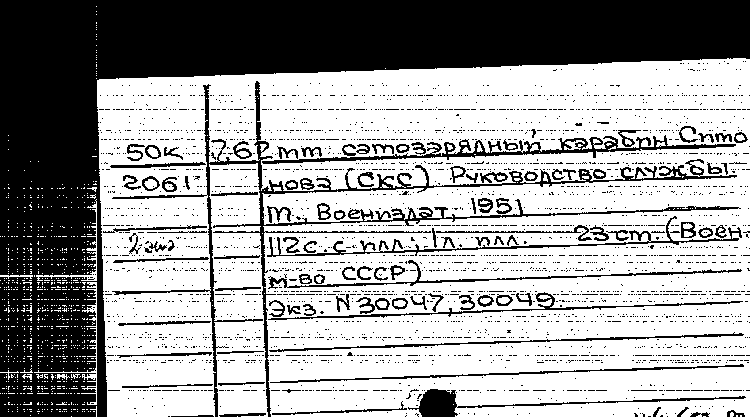 50К 7,62 mm самозарядный карабин Симо
2061 нова (СКС) Руководство службы.
m., Воениздат, 1951
2 экз 112 с. с илл.; 1 л. илл. 23 cm. (Воен.
м-во СССР)
Экз. N 30047, 30049.